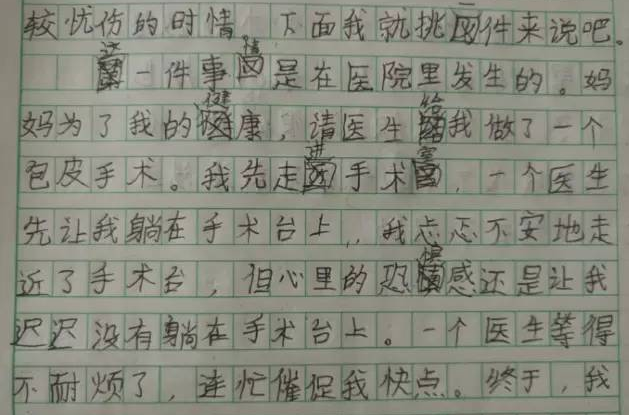 较忧伤的时情 下面我就挑件来说吧。
这一件事情是在医院里发生的。妈
妈为了我的健康，请医生给我做了一个
包皮手术。我先走进手术室，一个医生
先让我躺在手术台上，我忐忑不安地走
近了手术台，但心里的恐惧感还是让我
迟迟没有躺在手术台上。一个医生等得
不耐烦了，连忙催促我快点。终于，我